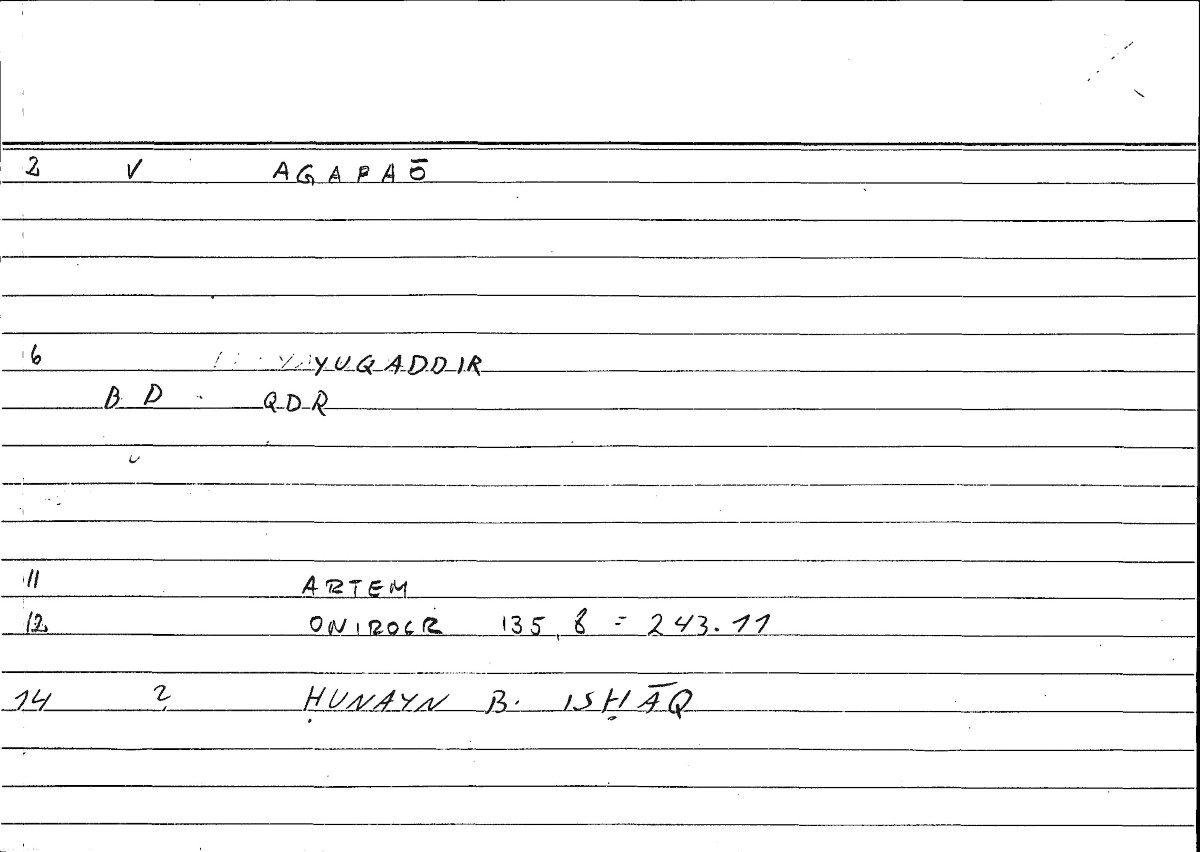 2 V AGAPAŌ
6 YUQADDIR
B D QDR
11 ARTEM
12 ONIROCR 135, 8 = 243.11
14 ? ḤUNAYN B. ISḤĀQ